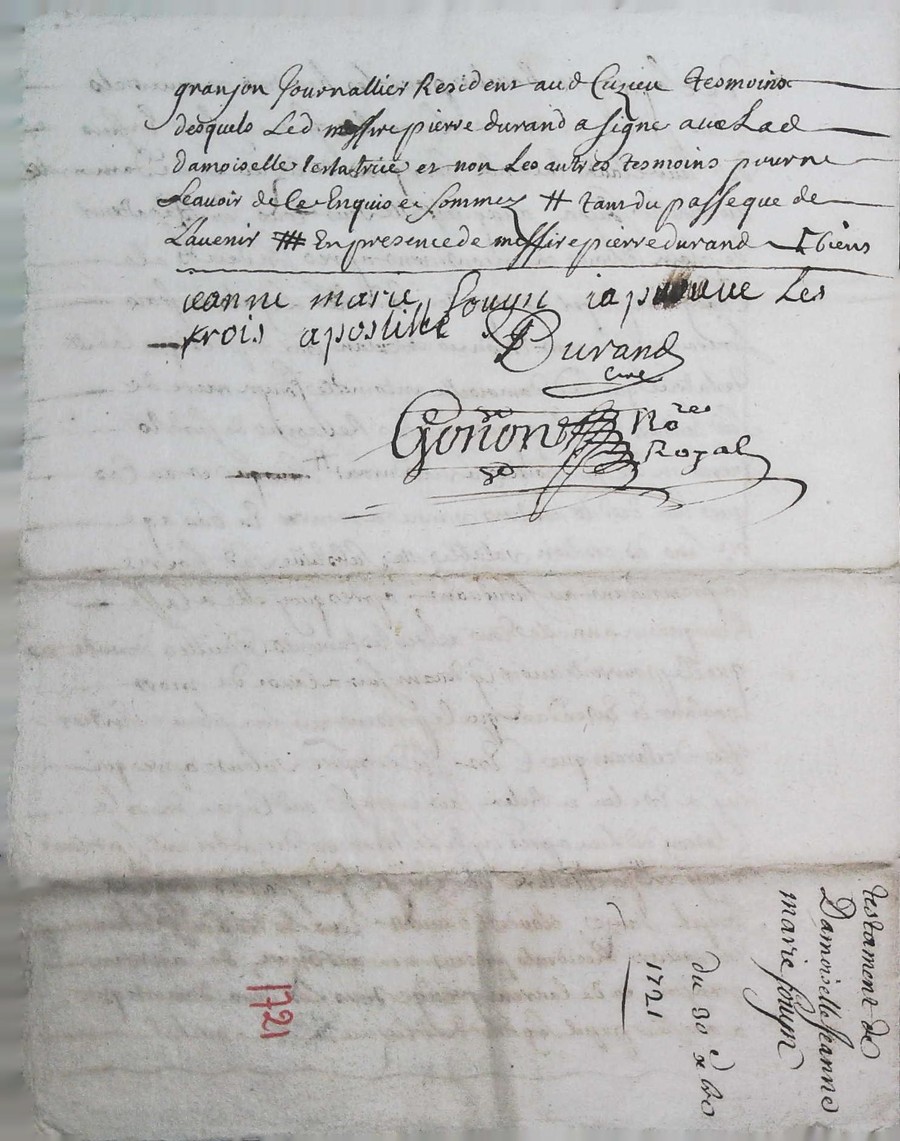 granjon Journallier Resident aud Cuzieu tesmoins
desquels Led messire pierre durand a signe avec Lad
damoiselle testatrice et non Les autres tesmoins pour ne
scavoir de ce Enquis et sommez # tant du passe que de
Lavenir # En presence de messire pierre durand biens
jeanne marie japrouve Les
trois apostille
Durand
Curé
Gonon Nore
Royal
testament de
Damoiselle Jeanne
marie
du 30
1721
1721